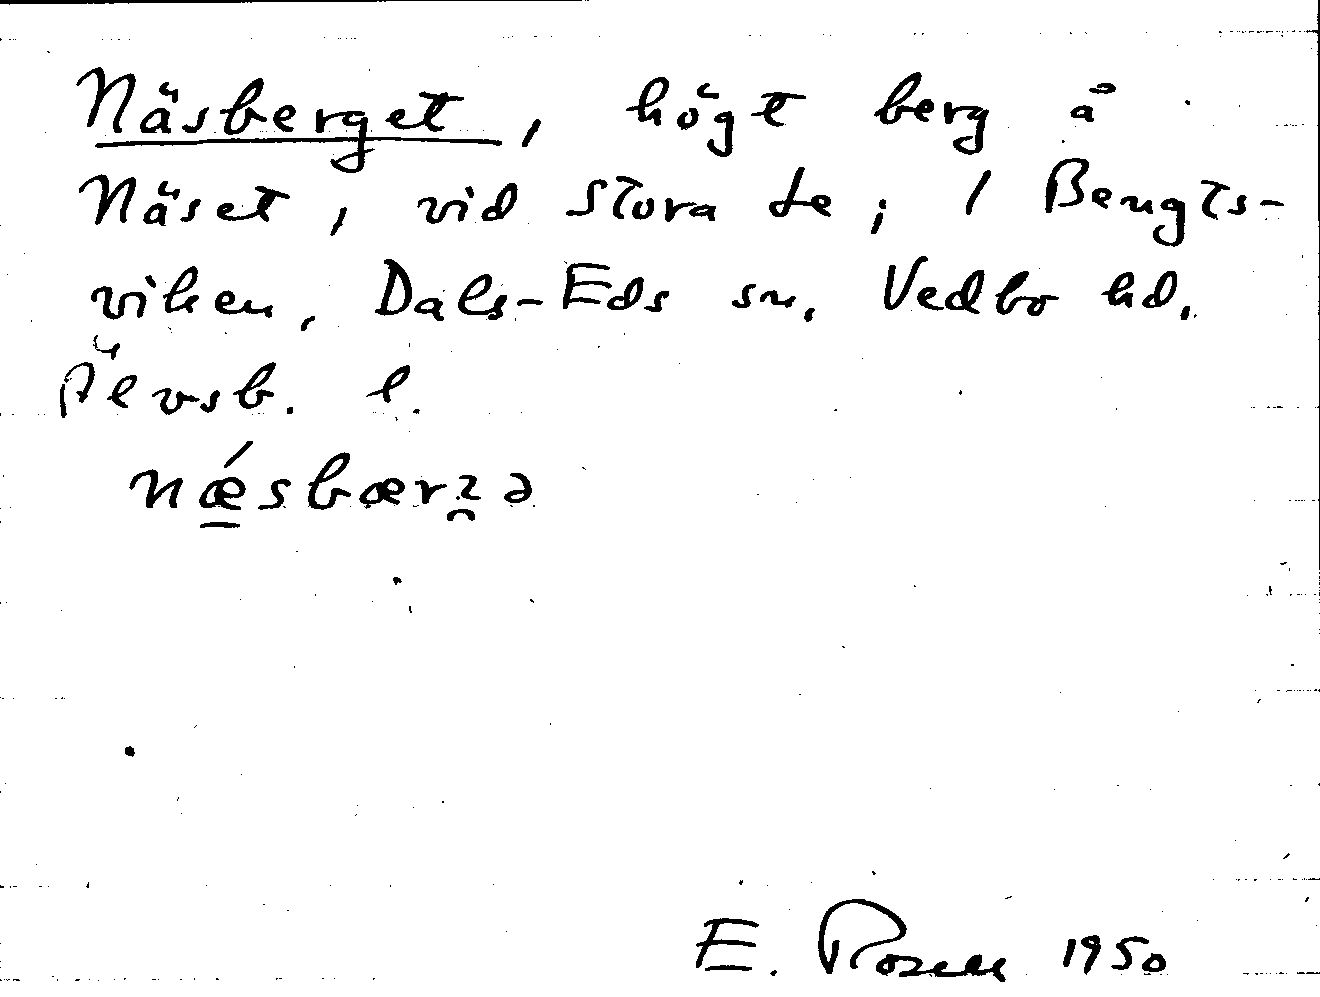 Näsberget, högt berg å
Näset, vid Stora Le; / Bengts-
viken, Dals-Eds sn, Vedbo hd,
Älvsb. l.
E. Rosell 1950